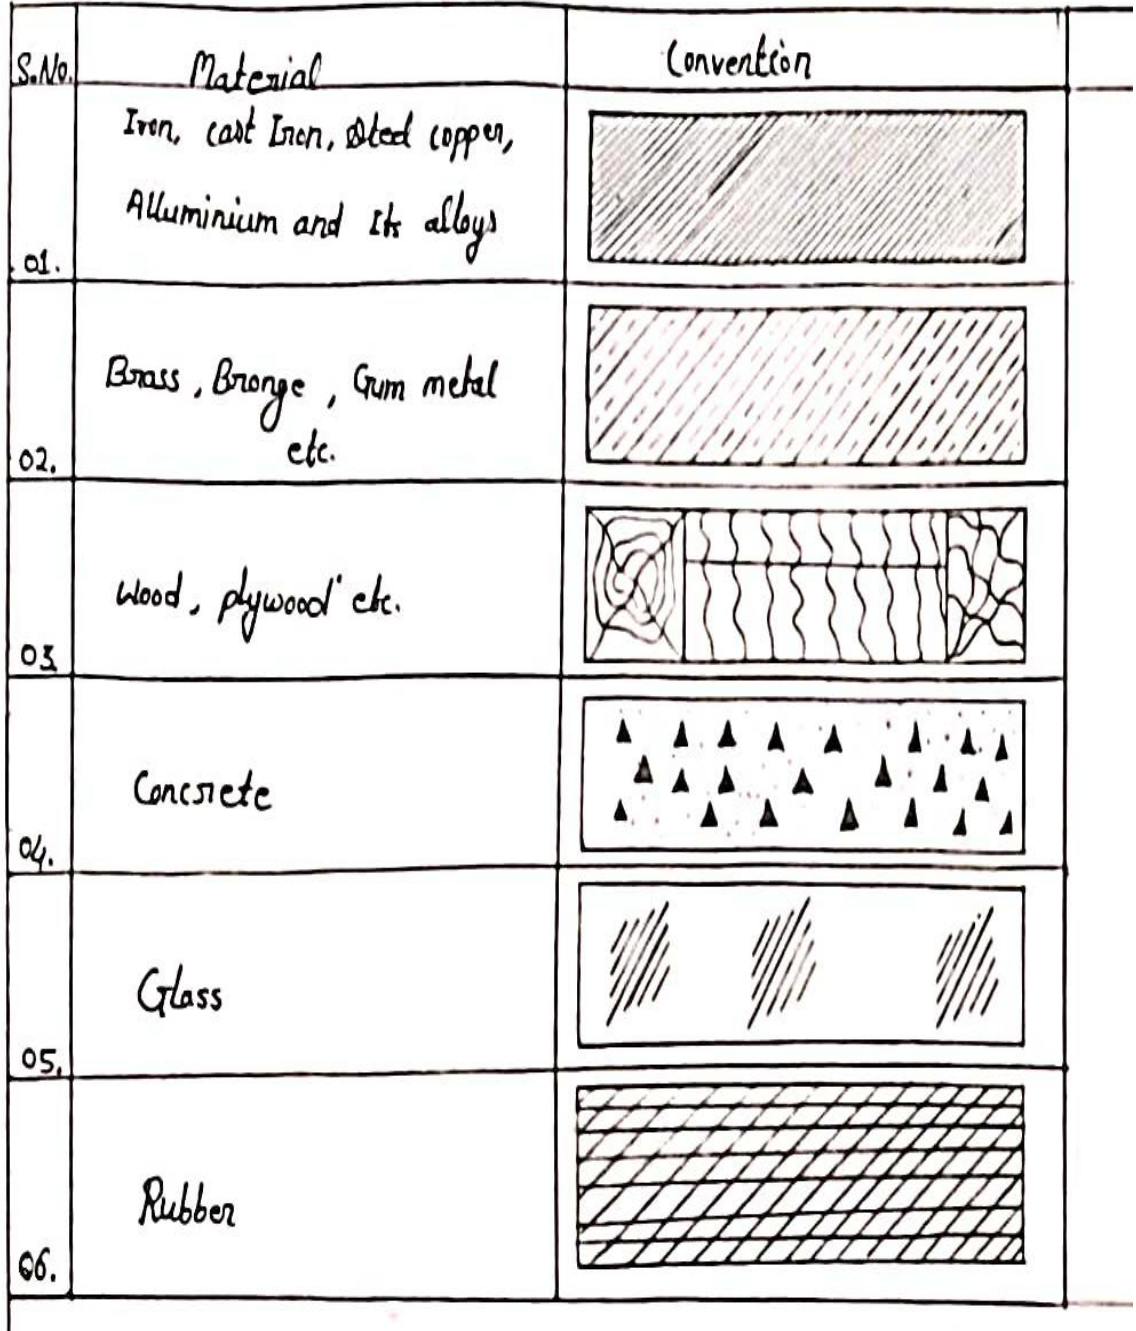 S.No. Material Convention
Iron, cast Iron, Steel copper,
Alluminium and Its alloys
01.
Brass, Bronge, Gum metal
etc.
02.
Wood, plywood etc.
03
Concrete
04.
Glass
05.
Rubber
06.